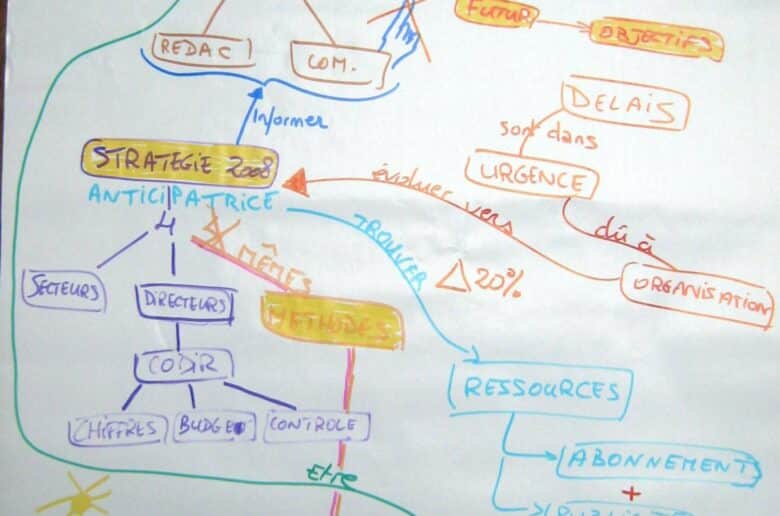 FUTUR
OBJECTIFS
REDAC
COM.
DELAIS
Informer
sont dans
STRATEGIE 2008
URGENCE
évoluer vers
ANTICIPATRICE
dû à
4
TROUVER
MÊMES
20%
ORGANISATION
SECTEURS
DIRECTEURS
METHODES
CODIR
RESSOURCES
CHIFFRES
BUDGET
CONTROLE
ABONNEMENTS
Etre
+